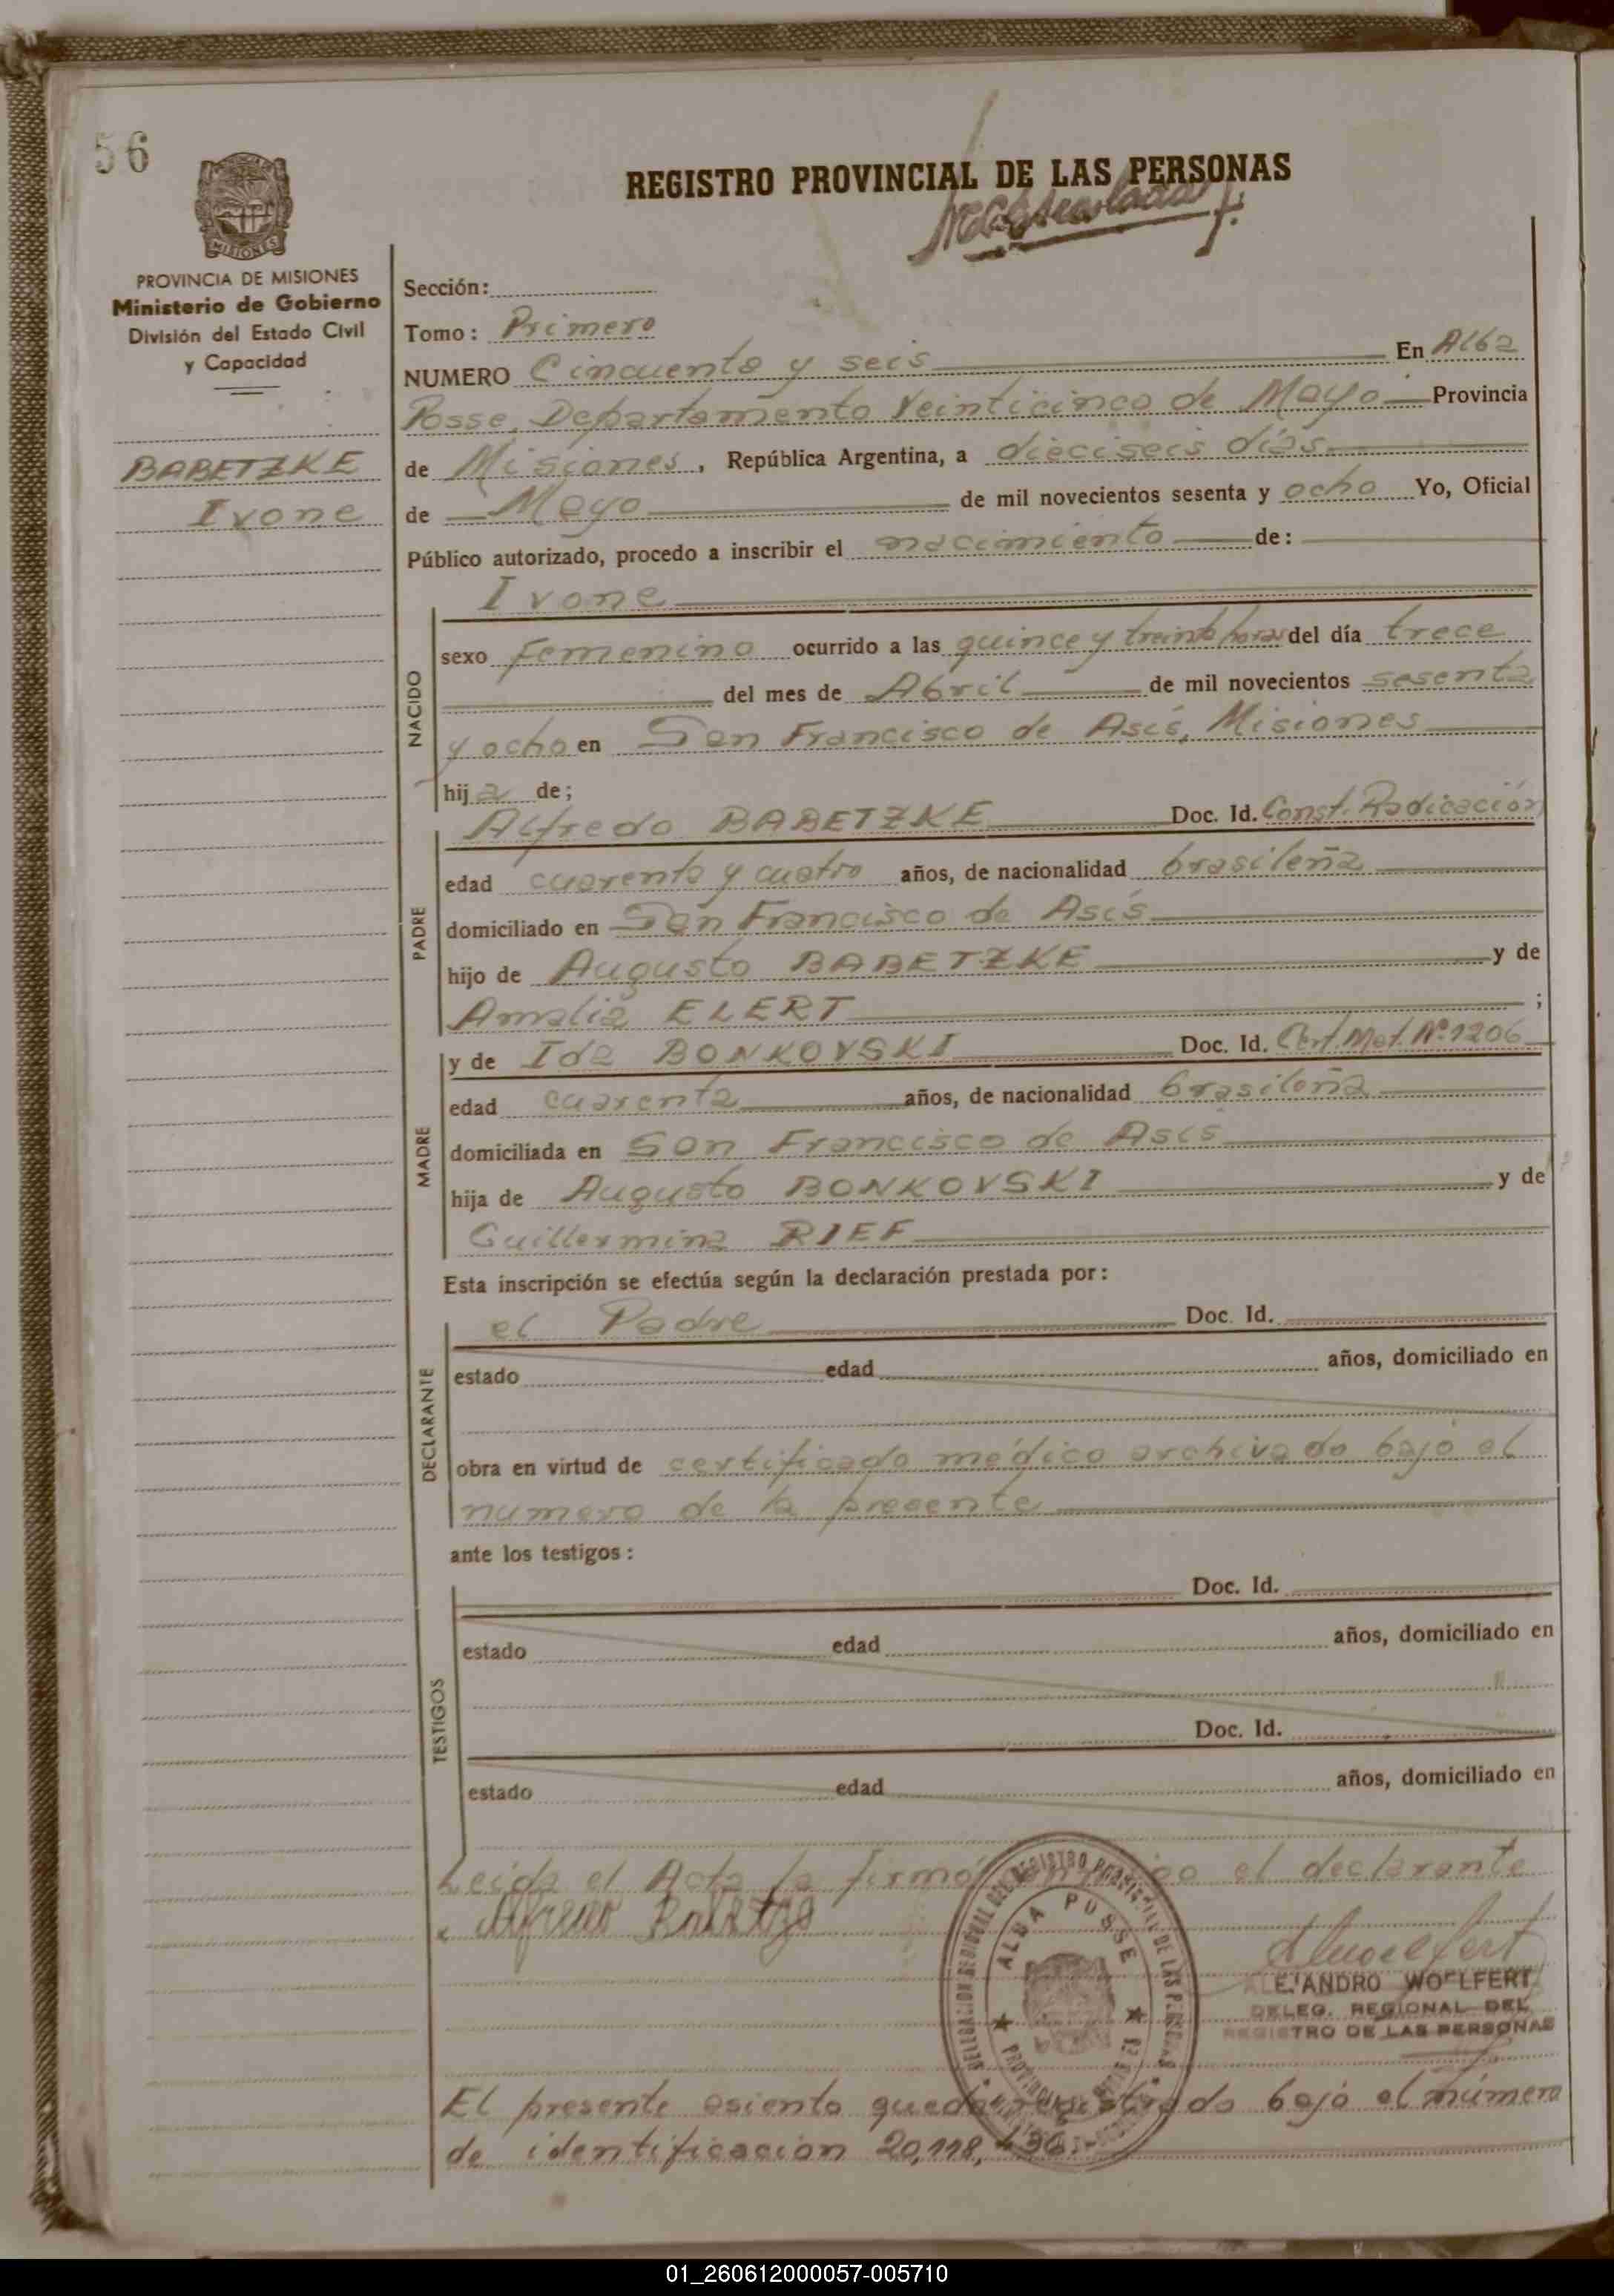 56
REGISTRO PROVINCIAL DE LAS PERSONAS
MISIONES
PROVINCIA DE MISIONES
Ministerio de Gobierno
División del Estado Civil
y Capacidad
BABETZKE
Ivone
Sección:
Tomo: Primero
NUMERO Cincuenta y seis En Alba
Posse, Departamento Veinticinco de Mayo Provincia
de Misiones, República Argentina, a dieciseis días
de Mayo de mil novecientos sesenta y ocho Yo, Oficial
Público autorizado, procedo a inscribir el nacimiento de:
Ivone
NACIDO
sexo femenino ocurrido a las quince y treinta horas del día trece
del mes de Abril de mil novecientos sesenta
y ocho en San Francisco de Asís, Misiones
hija de;
PADRE
Alfredo BABETZKE Doc. Id. Const. Radicación
edad cuarenta y cuatro años, de nacionalidad brasileña
domiciliado en San Francisco de Asís
hijo de Augusto BABETZKE y de
Amalia ELERT ;
MADRE
y de Ida BONKOVSKI Doc. Id. Cert. Mat. Nº 1206
edad cuarenta años, de nacionalidad brasileña
domiciliada en San Francisco de Asís
hija de Augusto BONKOVSKI y de
Guillermina RIEF
Esta inscripción se efectúa según la declaración prestada por:
DECLARANTE
el Padre Doc. Id.
estado edad años, domiciliado en
obra en virtud de certificado médico archivado bajo el
numero de la presente
ante los testigos:
TESTIGOS
Doc. Id.
estado edad años, domiciliado en
Doc. Id.
estado edad años, domiciliado en
Leída el Acta la firmó el declarante
Alfredo Babetzke
ALBA POSSE
ALEJANDRO WOELFERT
DELEG. REGIONAL DEL
REGISTRO DE LAS PERSONAS
El presente asiento queda registrado bajo el número
de identificación 20,118,436
01_260612000057-005710